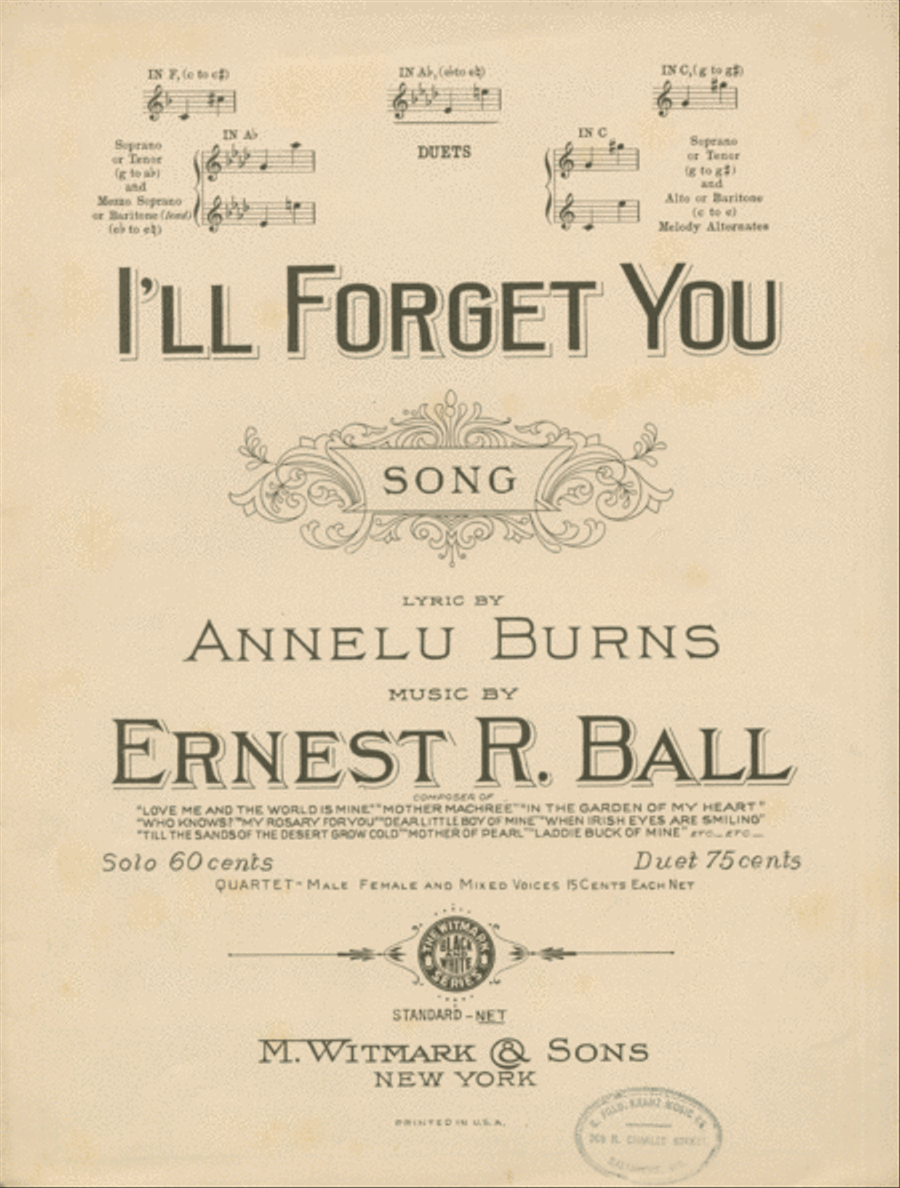 IN F, (c to c♯)
IN A♭, (e♭ to e♮)
IN C, (g to g♯)
IN A♭
DUETS
IN C
Soprano
or Tenor
(g to a♭)
and
Mezzo Soprano
or Baritone (lead)
(e♭ to e♮)
Soprano
or Tenor
(g to g♯)
and
Alto or Baritone
(c to e)
Melody Alternates
I'LL FORGET YOU
SONG
LYRIC BY
ANNELU BURNS
MUSIC BY
ERNEST R. BALL
COMPOSER OF
"LOVE ME AND THE WORLD IS MINE" "MOTHER MACHREE" "IN THE GARDEN OF MY HEART"
"WHO KNOWS?" "MY ROSARY FOR YOU" "DEAR LITTLE BOY OF MINE" "WHEN IRISH EYES ARE SMILING"
"TILL THE SANDS OF THE DESERT GROW COLD" "MOTHER OF PEARL" "LADDIE BUCK OF MINE" ETC._ ETC._
Solo 60 cents
Duet 75 cents
QUARTET - MALE FEMALE AND MIXED VOICES 15 CENTS EACH NET
THE WITMARK
BLACK
AND
WHITE
SERIES
STANDARD - NET
M. WITMARK & SONS
NEW YORK
PRINTED IN U.S.A.
KRANZ MUSIC CO.
N. CHARLES STREET